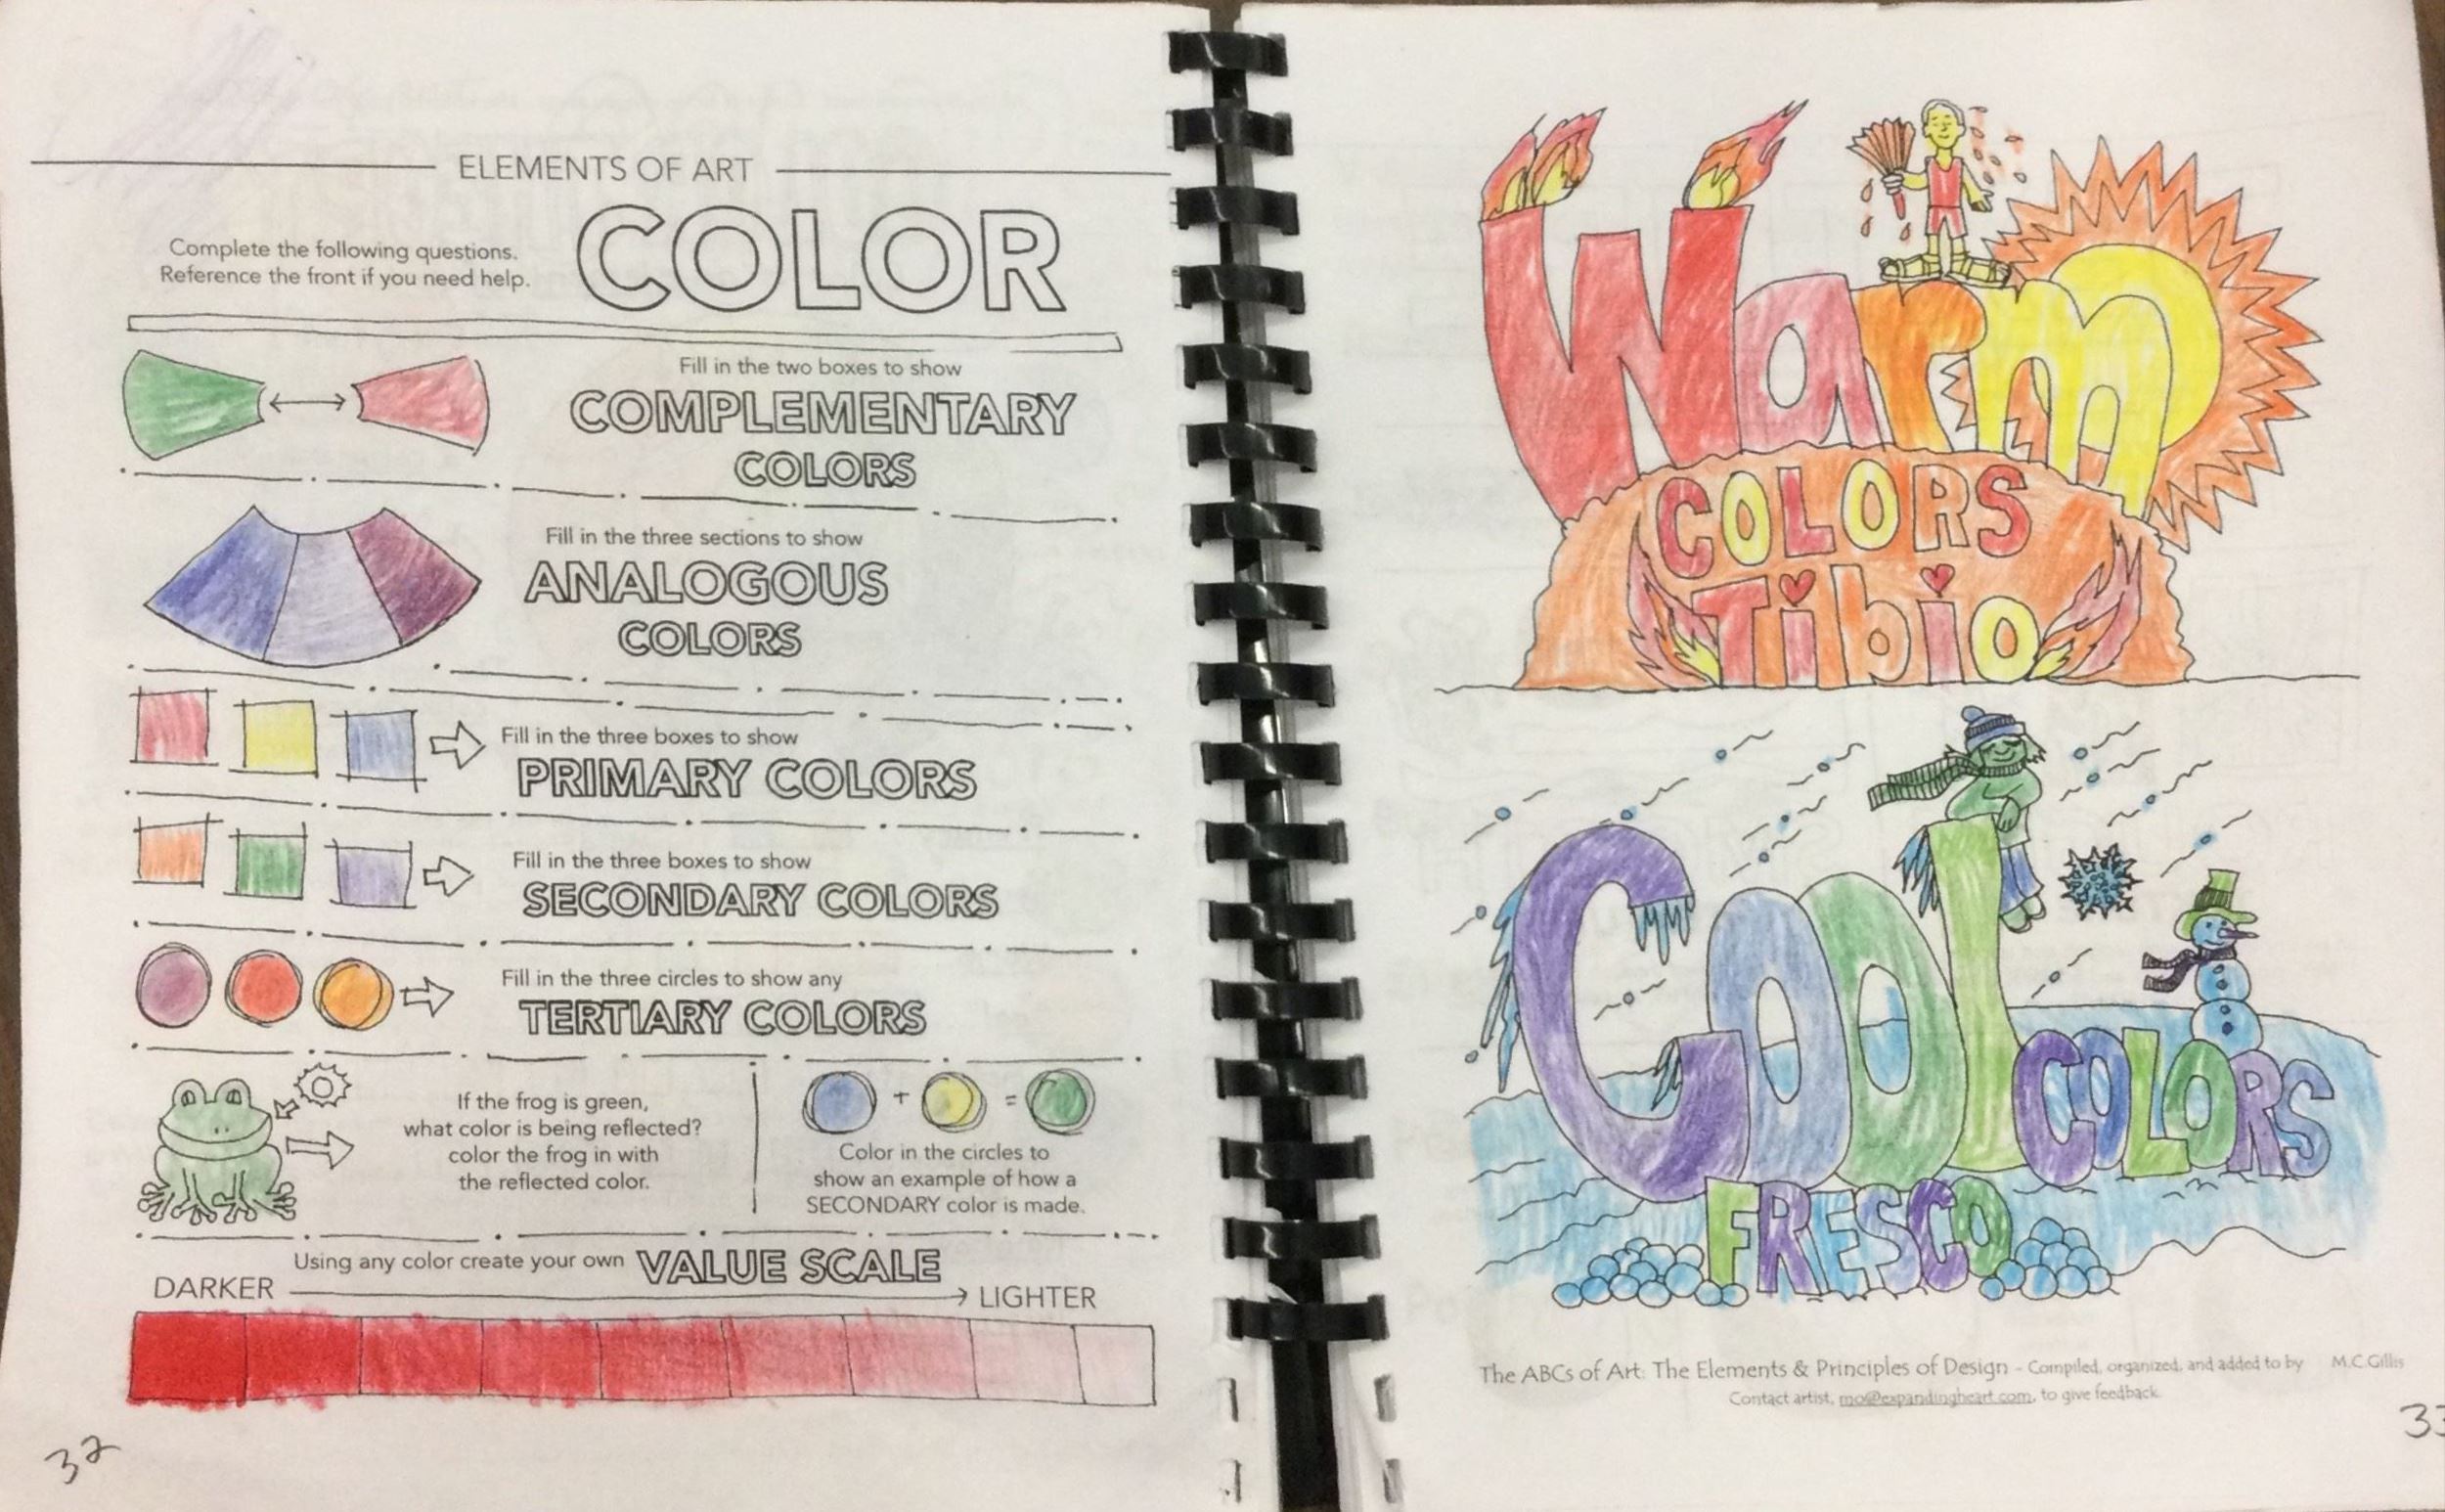 ELEMENTS OF ART
COLOR
Complete the following questions.
Reference the front if you need help.
Fill in the two boxes to show
COMPLEMENTARY
COLORS
Fill in the three sections to show
ANALOGOUS
COLORS
Fill in the three boxes to show
PRIMARY COLORS
Fill in the three boxes to show
SECONDARY COLORS
Fill in the three circles to show any
TERTIARY COLORS
If the frog is green,
what color is being reflected?
color the frog in with
the reflected color.
+ =
Color in the circles to
show an example of how a
SECONDARY color is made.
Using any color create your own VALUE SCALE
DARKER LIGHTER
32
Warm
COLORS
Tibio
Cool
COLORS
FRESCO
The ABCs of Art: The Elements & Principles of Design - Compiled, organized, and added to by M.C.Gillis
Contact artist, mo@expandingheart.com, to give feedback.
33